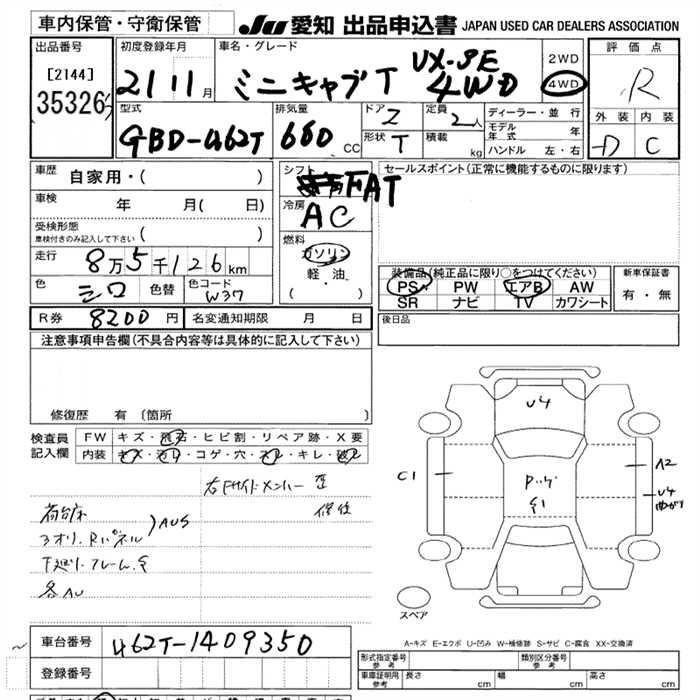 車内保管・守衛保管
JU 愛知 出品申込書 JAPAN USED CAR DEALERS ASSOCIATION
出品番号
[2144]
35326
初度登録年月
21 11月
車名・グレード
ミニキャブT VX-SE 4WD
2WD
4WD
評価点
R
外装 内装
D C
型式
GBD-U62T
排気量
660 CC
ドア
2
形状 T
定員
2人
積載 kg
ディーラー・並行
モデル年式 年
ハンドル 左・右
車歴
自家用・( )
車検 年 月( 日)
受検形態
車検付きのみ記入して下さい ( )
走行 8万5千126km
色 シロ 色替 色コード W37
シフト
FAT
冷房
AC
燃料
ガソリン
軽油
・( )
セールスポイント(正常に機能するものに限ります)
装備品(純正品に限り○をつけてください)
PS PW エアB AW
SR ナビ TV カワシート
新車保証書
有・無
R券 8200円 名変通知期限 月 日
後日品
注意事項申告欄(不具合内容等は具体的に記入して下さい)
修復歴 有(箇所 )
検査員記入欄
FW キズ・飛石・ヒビ割・リペア跡・X要
内装 キズ・汚レ・コゲ・穴・スレ・キレ・破レ
右Fサイドメンバー
荷台床
3オリ.Rパネル )AUS
下廻リ.フレーム.S
各AU
U4
C1
A2
U4
曲がり
S1
スペア
A-キズ E-エクボ U-凹み W-補修跡 S-サビ C-腐食 XX-交換済
車台番号 U62T-1409350
登録番号
形式指定番号 参考
類別区分番号 参考
車庫証明用 参考 長さ cm 幅 cm 高さ cm